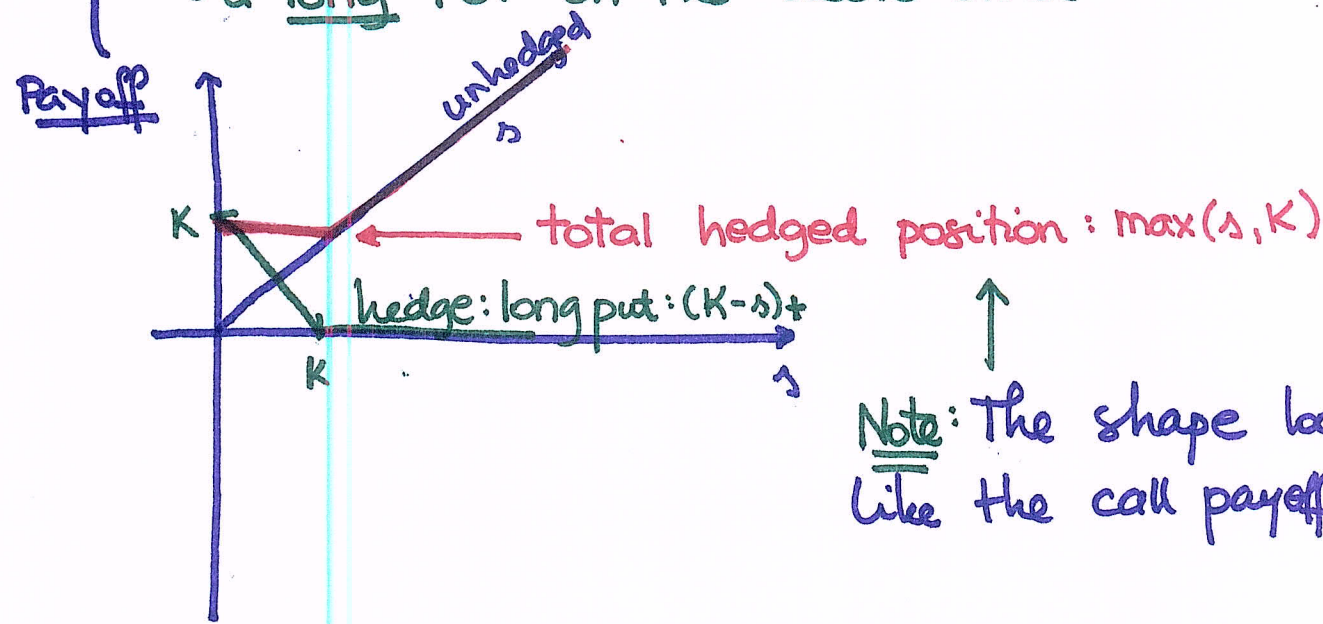 a long
Payoff
unhedged
s
K
total hedged position : max(s, K)
hedge: long put : (K-s)+
K
s
Note: The shape
like the call payoff